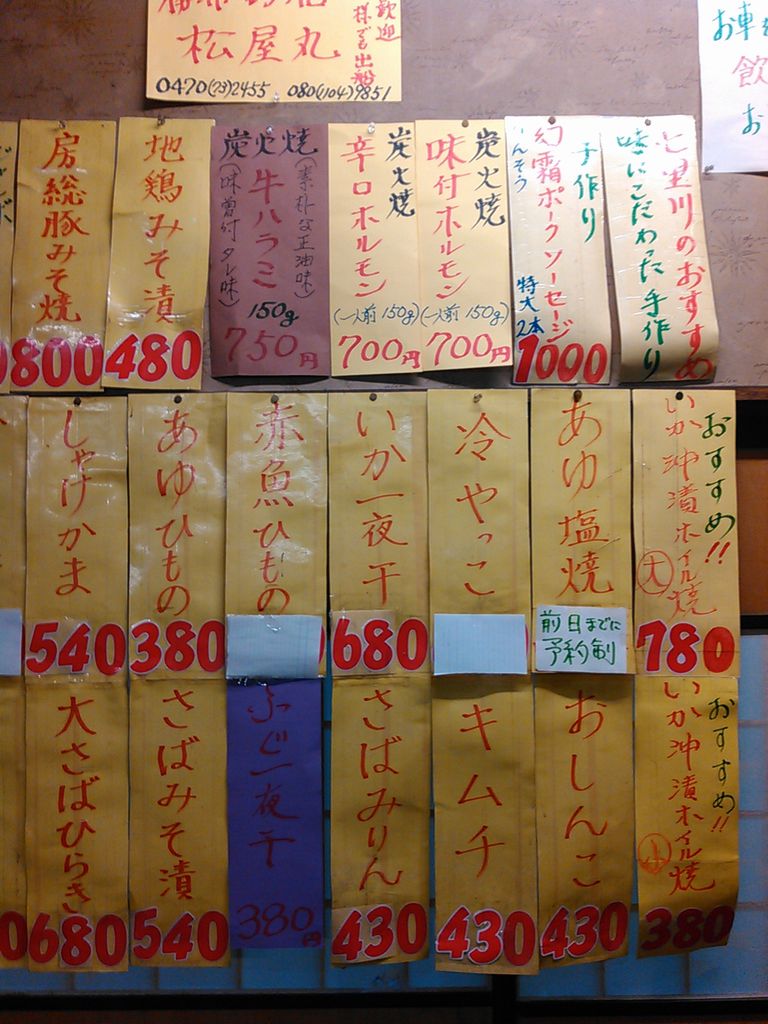 松屋丸
歓迎
様でも出船
0470(73)2455 080(1104)9851
お車
飲
お
七里川のおすすめ
味にこだわった手作り
手作り
幻霜ポークソーセージ
げんそう
特大2本
1000
炭火焼
味付ホルモン
(一人前150g)
700円
炭火焼
辛口ホルモン
(一人前150g)
700円
炭火焼
(素朴な正油味)
牛ハラミ
(味噌付タレ味)
150g
750円
地鶏みそ漬
480
房総豚みそ焼
800
おすすめ!!
いか沖漬ホイル焼
大
780
あゆ塩焼
前日までに
予約制
冷やっこ
いか一夜干
680
赤魚ひもの
あゆひもの
380
しゃけかま
540
おすすめ!!
いか沖漬ホイル焼
小
380
おしんこ
430
キムチ
430
さばみりん
430
ふぐ一夜干
380円
さばみそ漬
540
大さばひらき
680